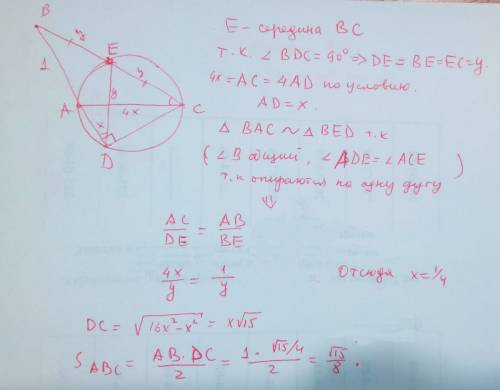 B
y
E
1
y
y
A
4x
C
x
D
E - середина BC
т.к. ∠BDC = 90° ⇒ DE = BE = EC = y.
4x = AC = 4AD по условию.
AD = x.
△ BAC ~ △ BED т.к
( ∠B общий, ∠ADE = ∠ACE )
т.к опираются на одну дугу
⇓
AC/DE = AB/BE
4x/y = 1/y
Отсюда x = 1/4
DC = √(16x² - x²) = x√15
S ABC = AB·DC/2 = 1·√15/4/2 = √15/8.